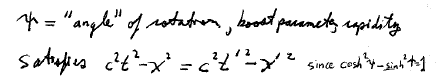 ψ = "angle" of rotation, boost parameter rapidity
Satisfies c²t² - x² = c²t'² - x'² since cosh²ψ - sinh²ψ = 1